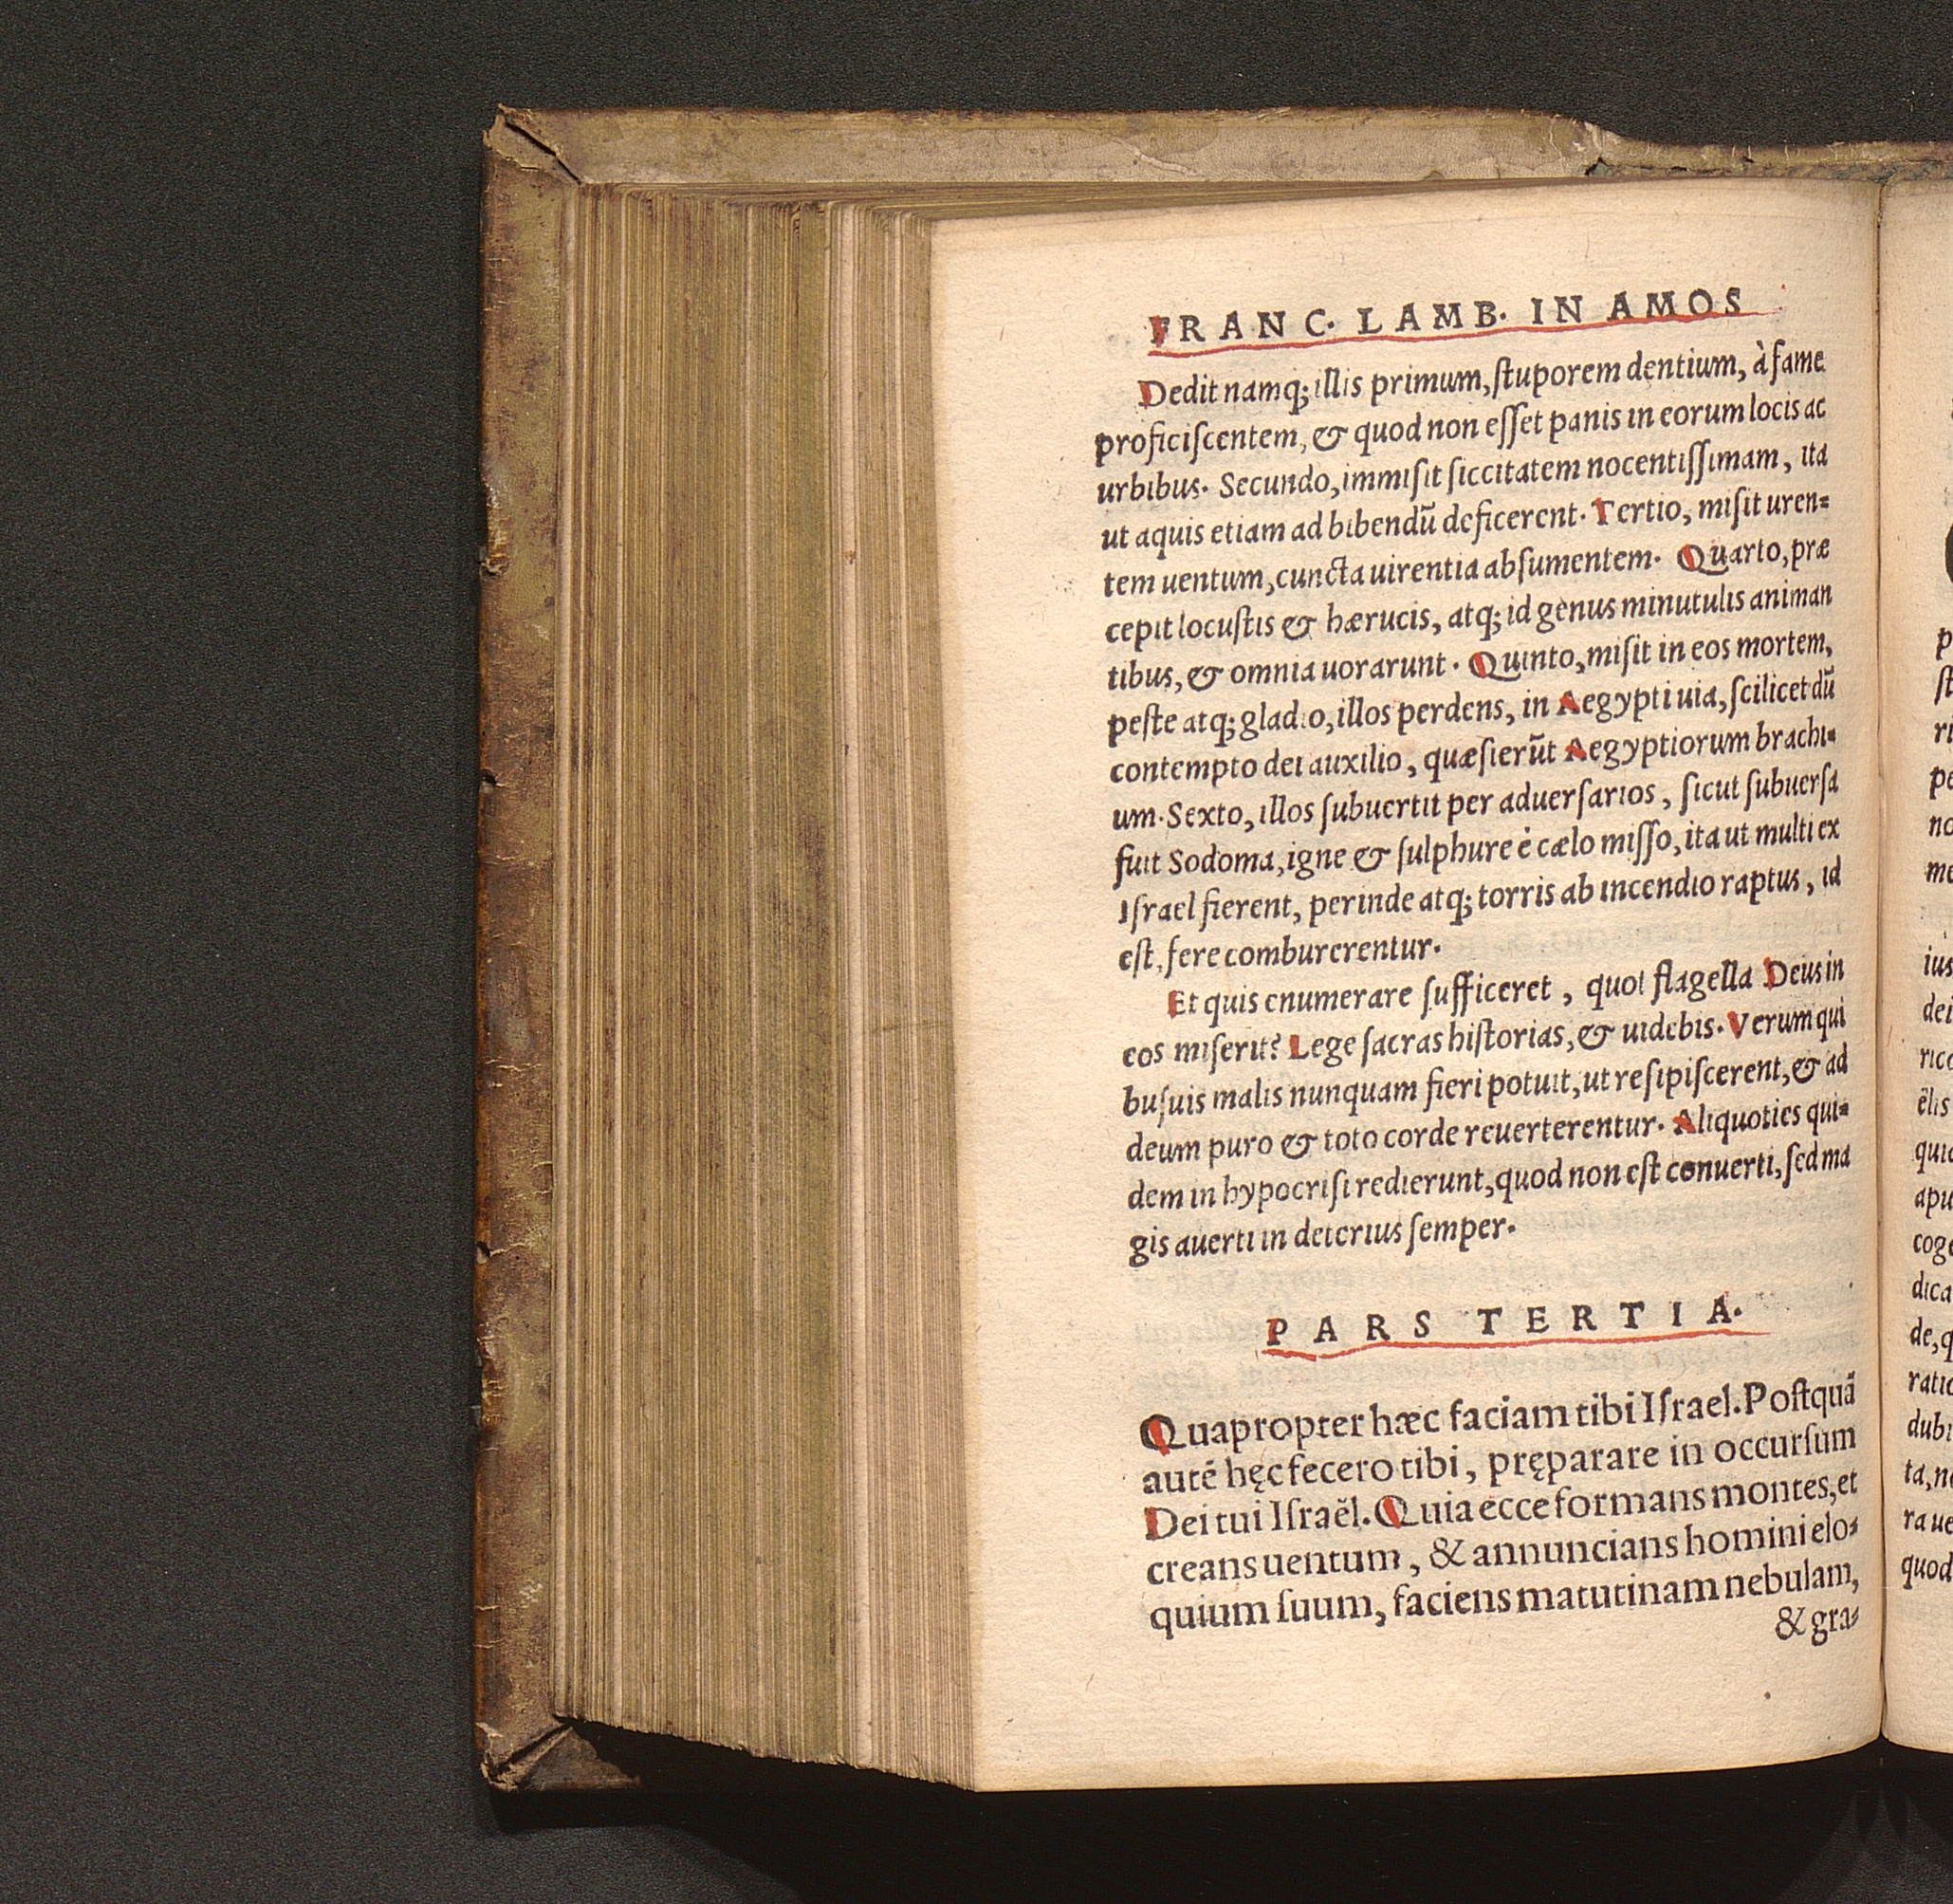 FRANC. LAMB. IN AMOS
Dedit namq; illis primum, ſtuporem dentium, à fame
proficiſcentem, & quod non eſſet panis in eorum locis ac
urbibus. Secundo, immiſit ſiccitatem nocentiſſimam, ita
ut aquis etiam ad bibendū deficerent. Tertio, miſit uren=
tem uentum, cuncta uirentia abſumentem. Quarto, præ
cepit locuſtis & hærucis, atq; id genus minutulis animan
tibus, & omnia uorarunt. Quinto, miſit in eos mortem,
peſte atq; gladio, illos perdens, in Aegypti uia, ſcilicet dū
contempto dei auxilio, quæſierūt Aegyptiorum brachi=
um. Sexto, illos ſubuertit per aduerſarios, ſicut ſubuerſa
fuit Sodoma, igne & ſulphure è cælo miſſo, ita ut multi ex
Iſrael fierent, perinde atq; torris ab incendio raptus, id
eſt, fere comburerentur.
Et quis enumerare ſufficeret, quot flagella Deus in
eos miſerit? Lege ſacras hiſtorias, & uidebis. Verum qui
buſuis malis nunquam fieri potuit, ut reſipiſcerent, & ad
deum puro & toto corde reuerterentur. Aliquoties qui=
dem in hypocriſi redierunt, quod non eſt conuerti, ſed ma
gis auerti in deterius ſemper.
PARS TERTIA.
Quapropter hæc faciam tibi Iſrael. Poſtquā
autē hęc fecero tibi, pręparare in occurſum
Dei tui Iſraël. Quia ecce formans montes, et
creans uentum, & annuncians homini elo=
quium ſuum, faciens matutinam nebulam,
& gra=